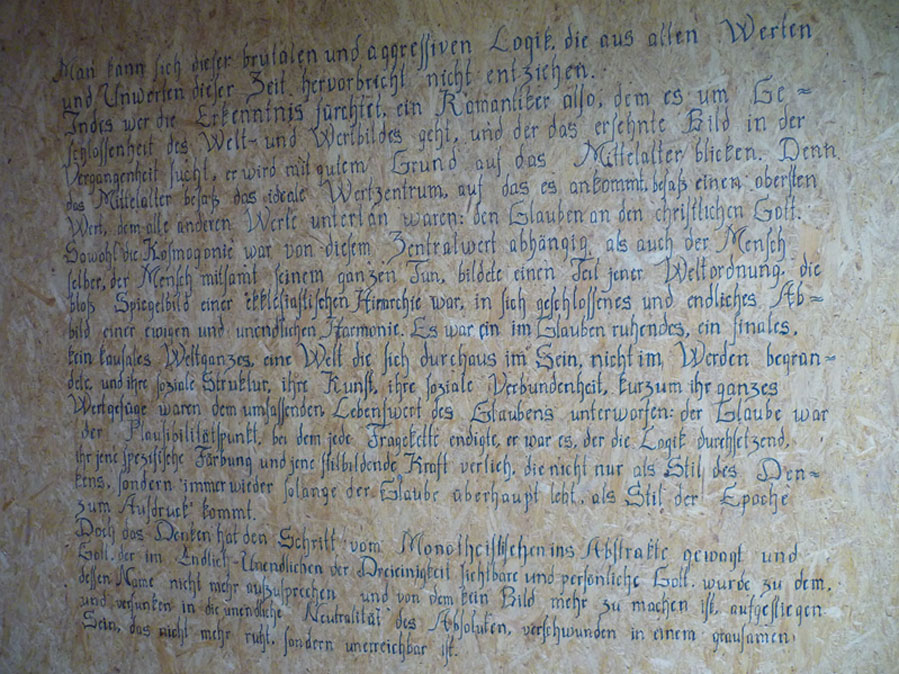 Man kann sich dieser brutalen und aggressiven Logik, die aus allen Werten
und Unwerten dieser Zeit hervorbricht nicht entziehen.
Indes wer die Erkenntnis fürchtet, ein Romantiker also, dem es um Ge=
schlossenheit des Welt- und Wertbildes geht, und der das ersehnte Bild in der
Vergangenheit sucht, er wird mit gutem Grund auf das Mittelalter blicken. Denn
das Mittelalter besaß das ideale Wertzentrum, auf das es ankommt, besaß einen obersten
Wert, dem alle anderen Werte untertan waren: den Glauben an den christlichen Gott.
Sowohl die Kosmogonie war von diesem Zentralwert abhängig, als auch der Mensch
selber, der Mensch mitsamt seinem ganzen Tun, bildete einen Teil jener Weltordnung, die
bloß Spiegelbild einer ekklesiastischen Hierarchie war, in sich geschlossenes und endliches Ab=
bild einer ewigen und unendlichen Harmonie. Es war ein im Glauben ruhendes, ein finales,
kein kausales Weltganzes, eine Welt die sich durchaus im Sein, nicht im Werden begrün=
dete, und ihre soziale Struktur, ihre Kunst, ihre soziale Verbundenheit, kurzum ihr ganzes
Wertgefüge waren dem umfassenden Lebenswert des Glaubens unterworfen: der Glaube war
der Plausibilitätspunkt, bei dem jede Fragekette endigte, er war es, der die Logik durchsetzend,
ihr jene spezifische Färbung und jene stilbildende Kraft verlieh, die nicht nur als Stil des Den=
kens, sondern immer wieder solange der Glaube überhaupt lebt, als Stil der Epoche
zum Ausdruck kommt.
Doch das Denken hat den Schritt vom Monotheistischen ins Abstrakte gewagt und
Gott, der im Endlich-Unendlichen der Dreieinigkeit sichtbare und persönliche Gott, wurde zu dem,
dessen Name nicht mehr auszusprechen und von dem kein Bild mehr zu machen ist, aufgestiegen
und versunken in die unendliche Neutralität des Absoluten, verschwunden in einem grausamen
Sein, das nicht mehr ruht, sondern unerreichbar ist.